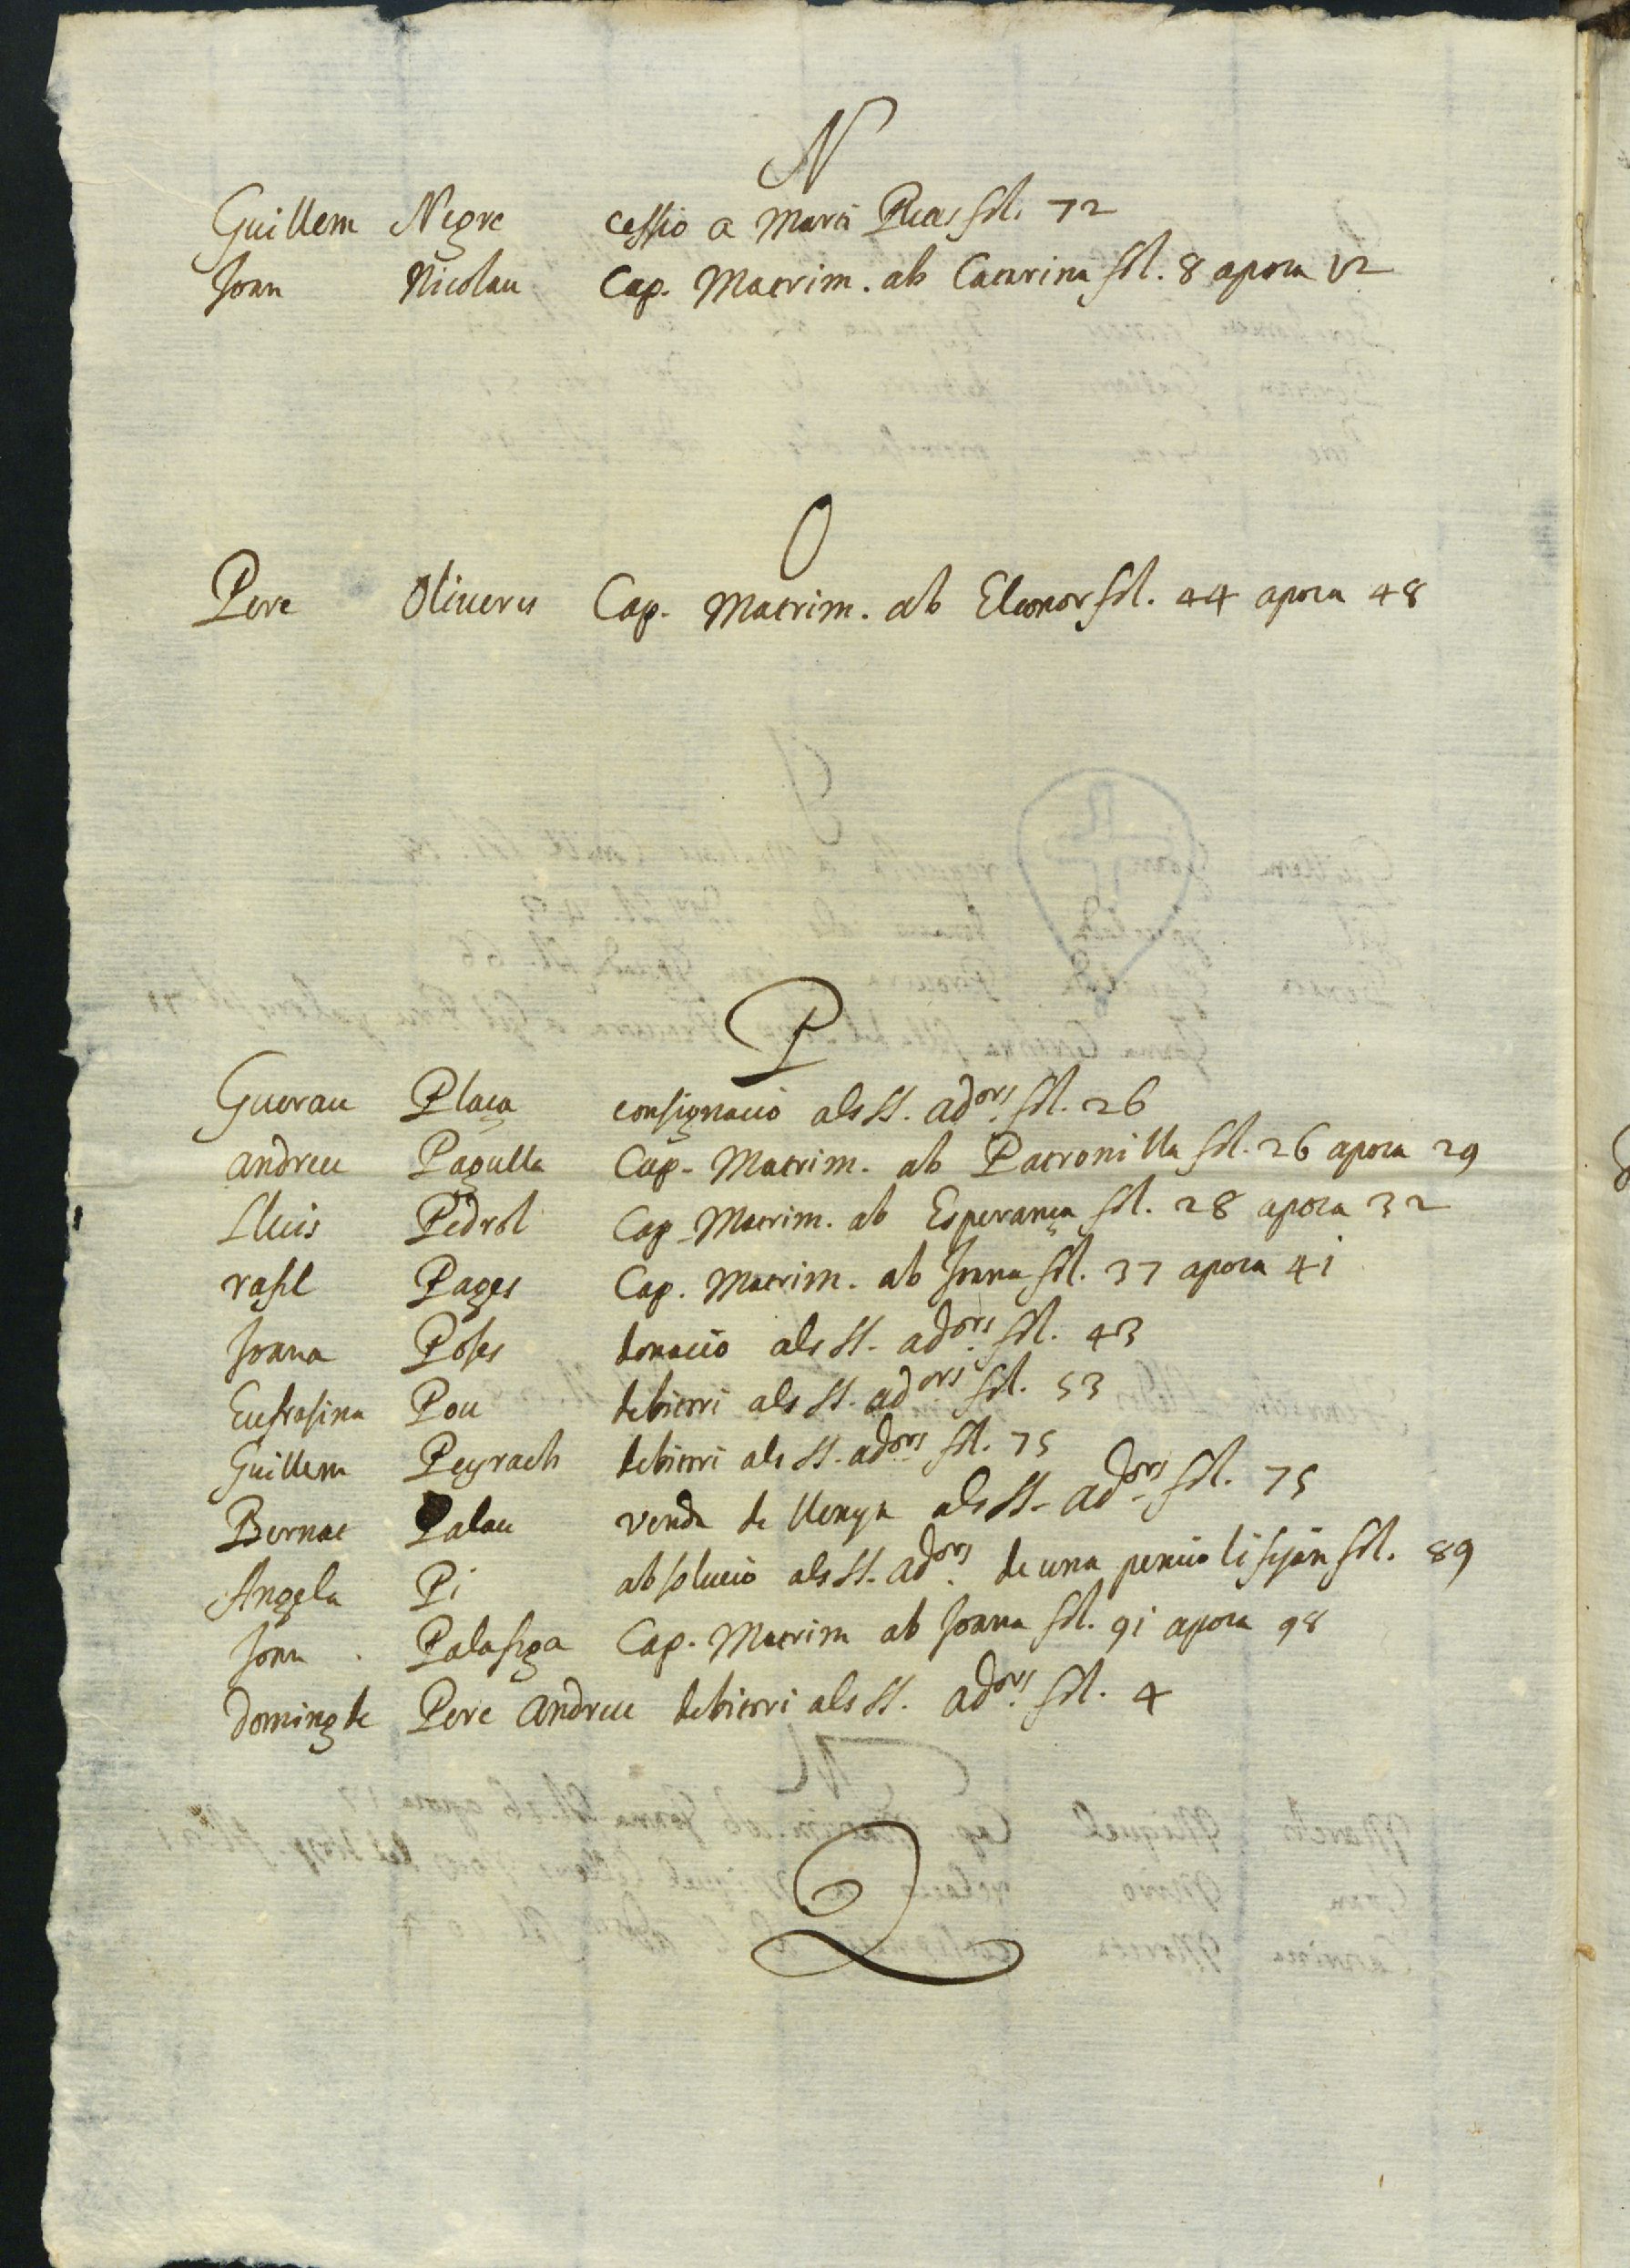 N
Guillem Negre cessio a Marti fol. 72
Joan Nicolau Cap. Matrim. ab Catarina fol. 8 apoca 12
O
Pere Oliveres Cap. Matrim. ab Eleonor fol. 44 apoca 48
P
Guerau Plaça consignacio als SS. ad.ors fol. 26
Andreu Pagulla Cap. Matrim. ab Patronilla fol. 26 apoca 29
Lluis Pedrol Cap. Matrim. ab Esperança fol. 28 apoca 32
rafel Pages Cap. Matrim. ab Joana fol. 37 apoca 41
Joana Poses donacio als SS. ad.ors fol. 43
Eufrasina Pou debitori als SS. ad.ors fol. 53
Guillem Peyrach debitori als SS. ad.ors fol. 75
Bernat Palau venda de llenya als SS. ad.ors fol. 75
Angela Pi absolucio als SS. ad.ors de una pencio li fol. 89
Joan Palafiga Cap. Matrim ab Joana fol. 91 apoca 98
Doming de Pere Andreu debitori als SS. ad.ors fol. 4
Q